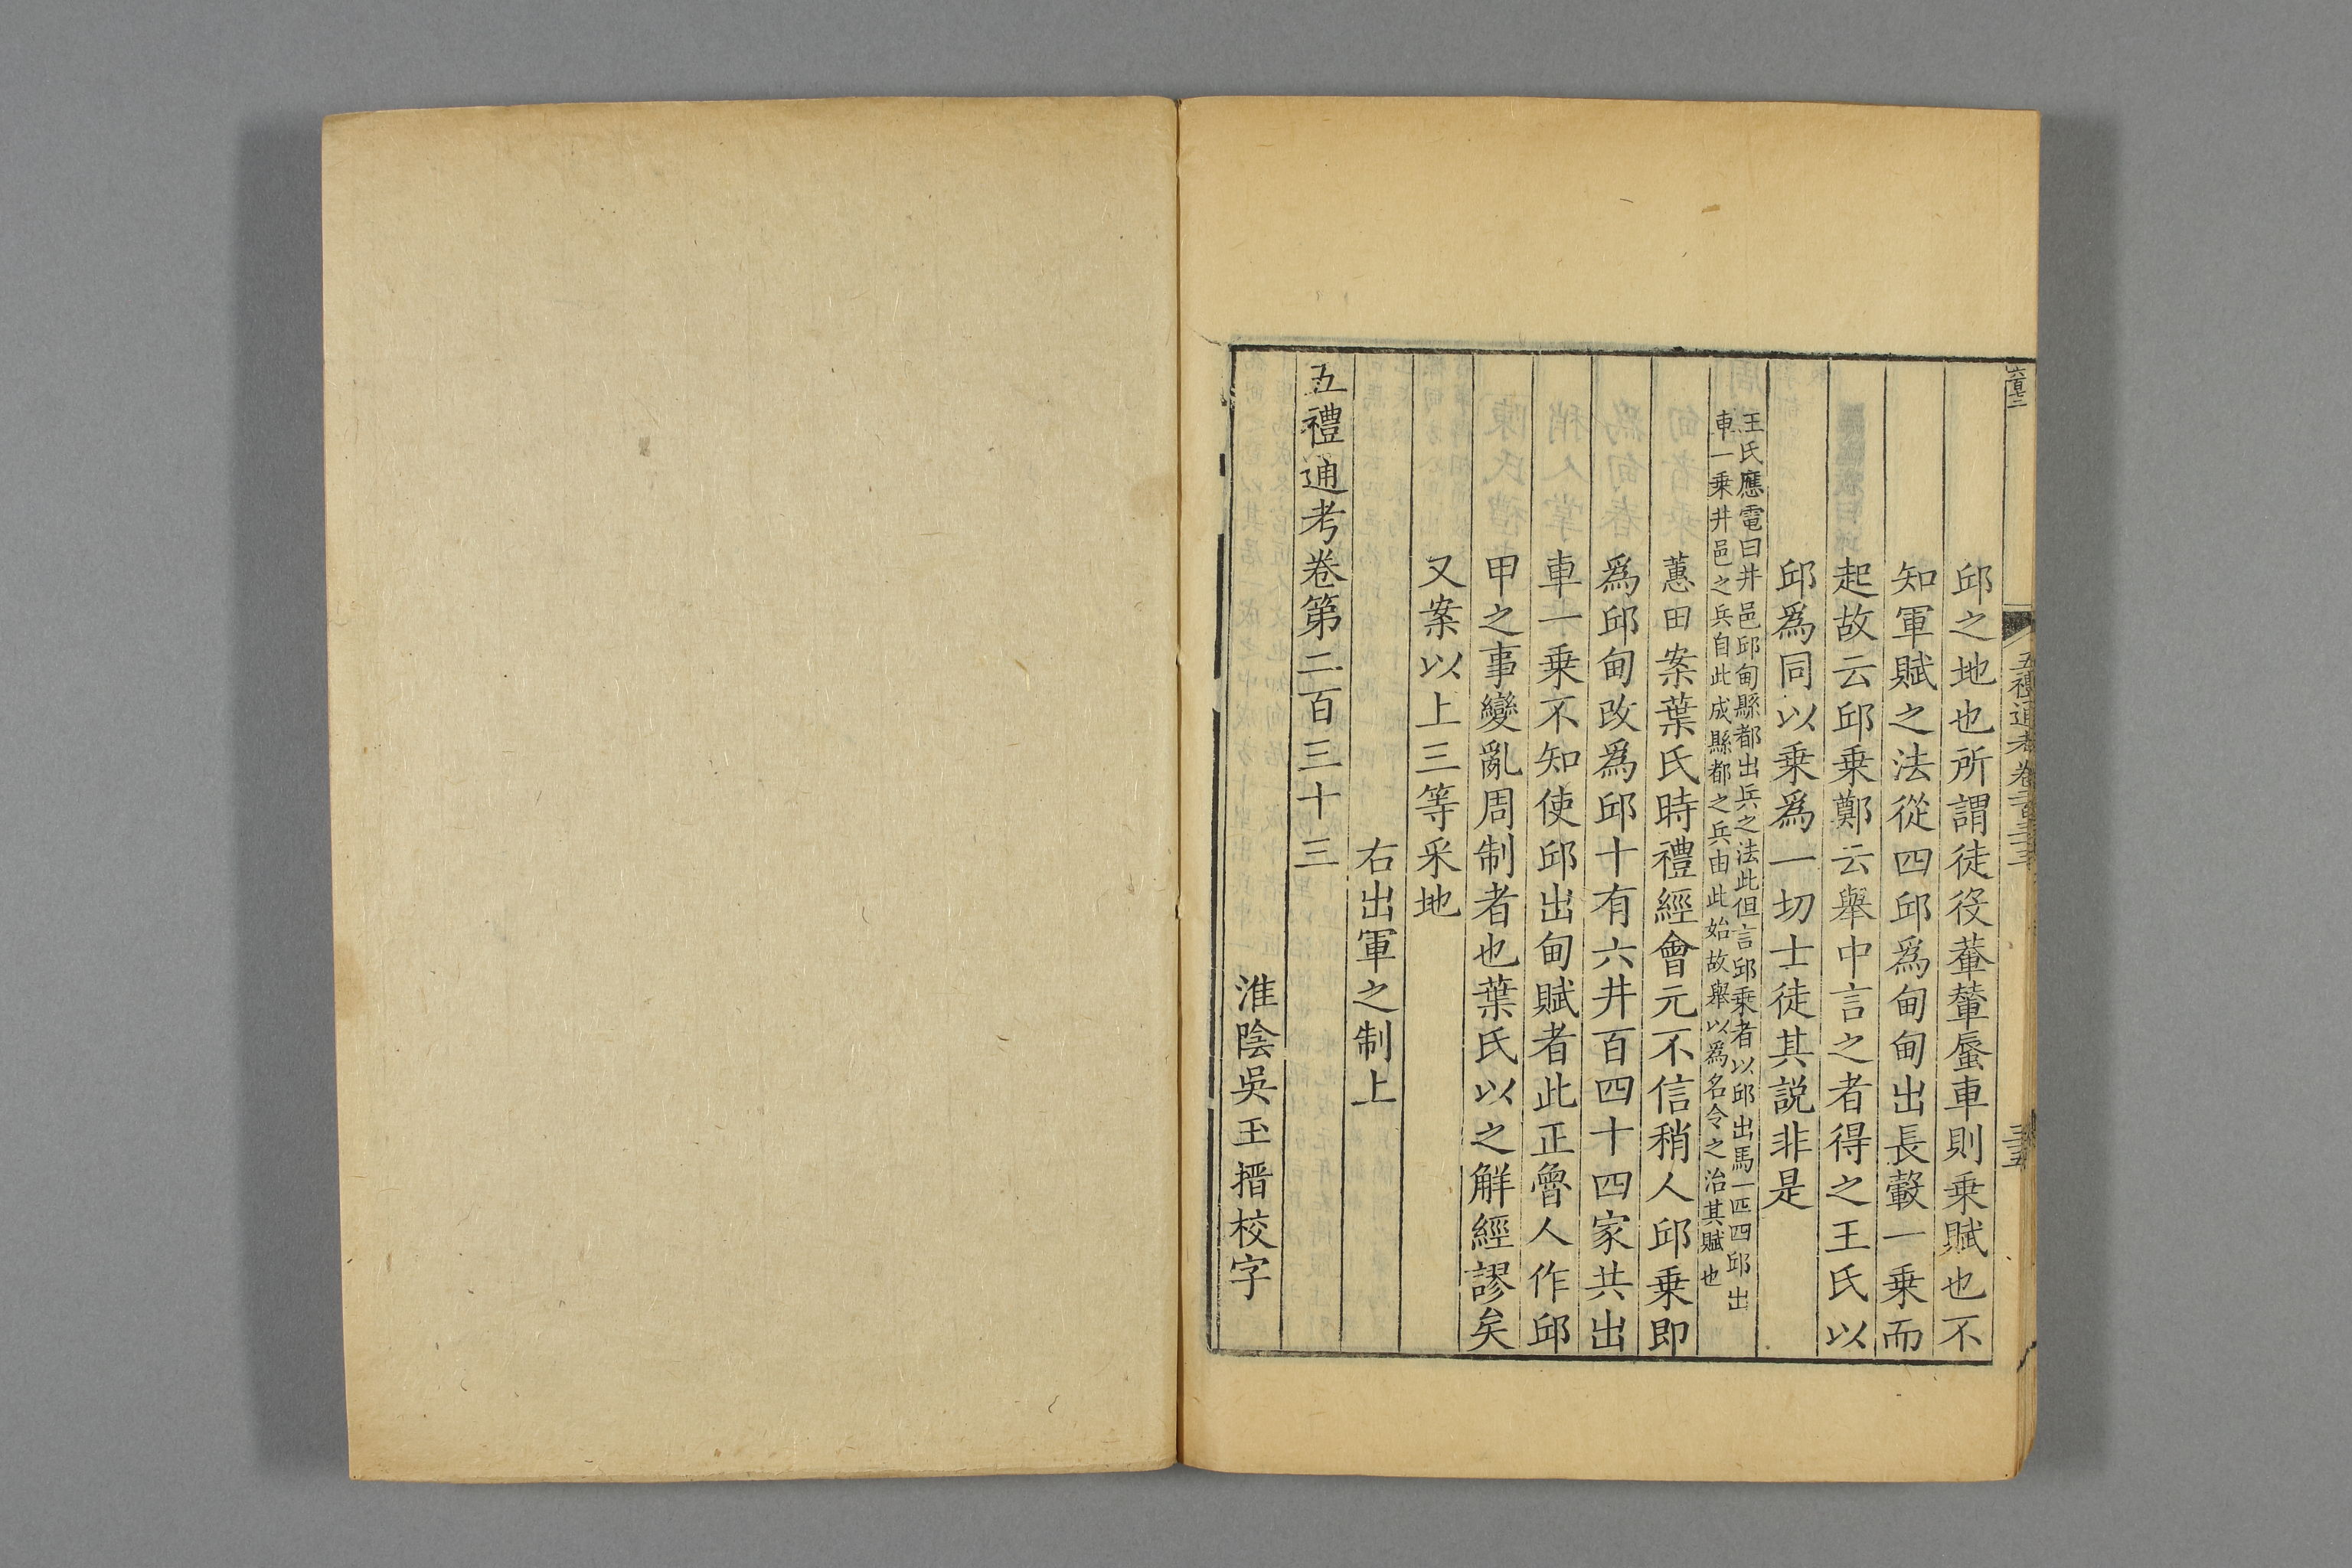 五禮通考卷二百三十三
三五
邱之地也所謂徒役輂輦蜃車則乗賦也不
知軍賦之法從四邱爲甸甸出長轂一乗而
起故云邱乗鄭云舉中言之者得之王氏以
邱爲同以乗爲一切士徒其説非是
王氏應電曰井邑邱甸縣都出兵之法此但言邱乗者以邱出馬一匹四邱出
車一乗井邑之兵自此成縣都之兵由此始故舉以爲名令之治其賦也
蕙田案葉氏時禮經會元不信稍人邱乗即
爲邱甸改爲邱十有六井百四十四家共出
車一乗不知使邱出甸賦者此正魯人作邱
甲之事變亂周制者也葉氏以之解經謬矣
又案以上三等采地
右出軍之制上
五禮通考卷第二百三十三
淮陰吳玉搢校字